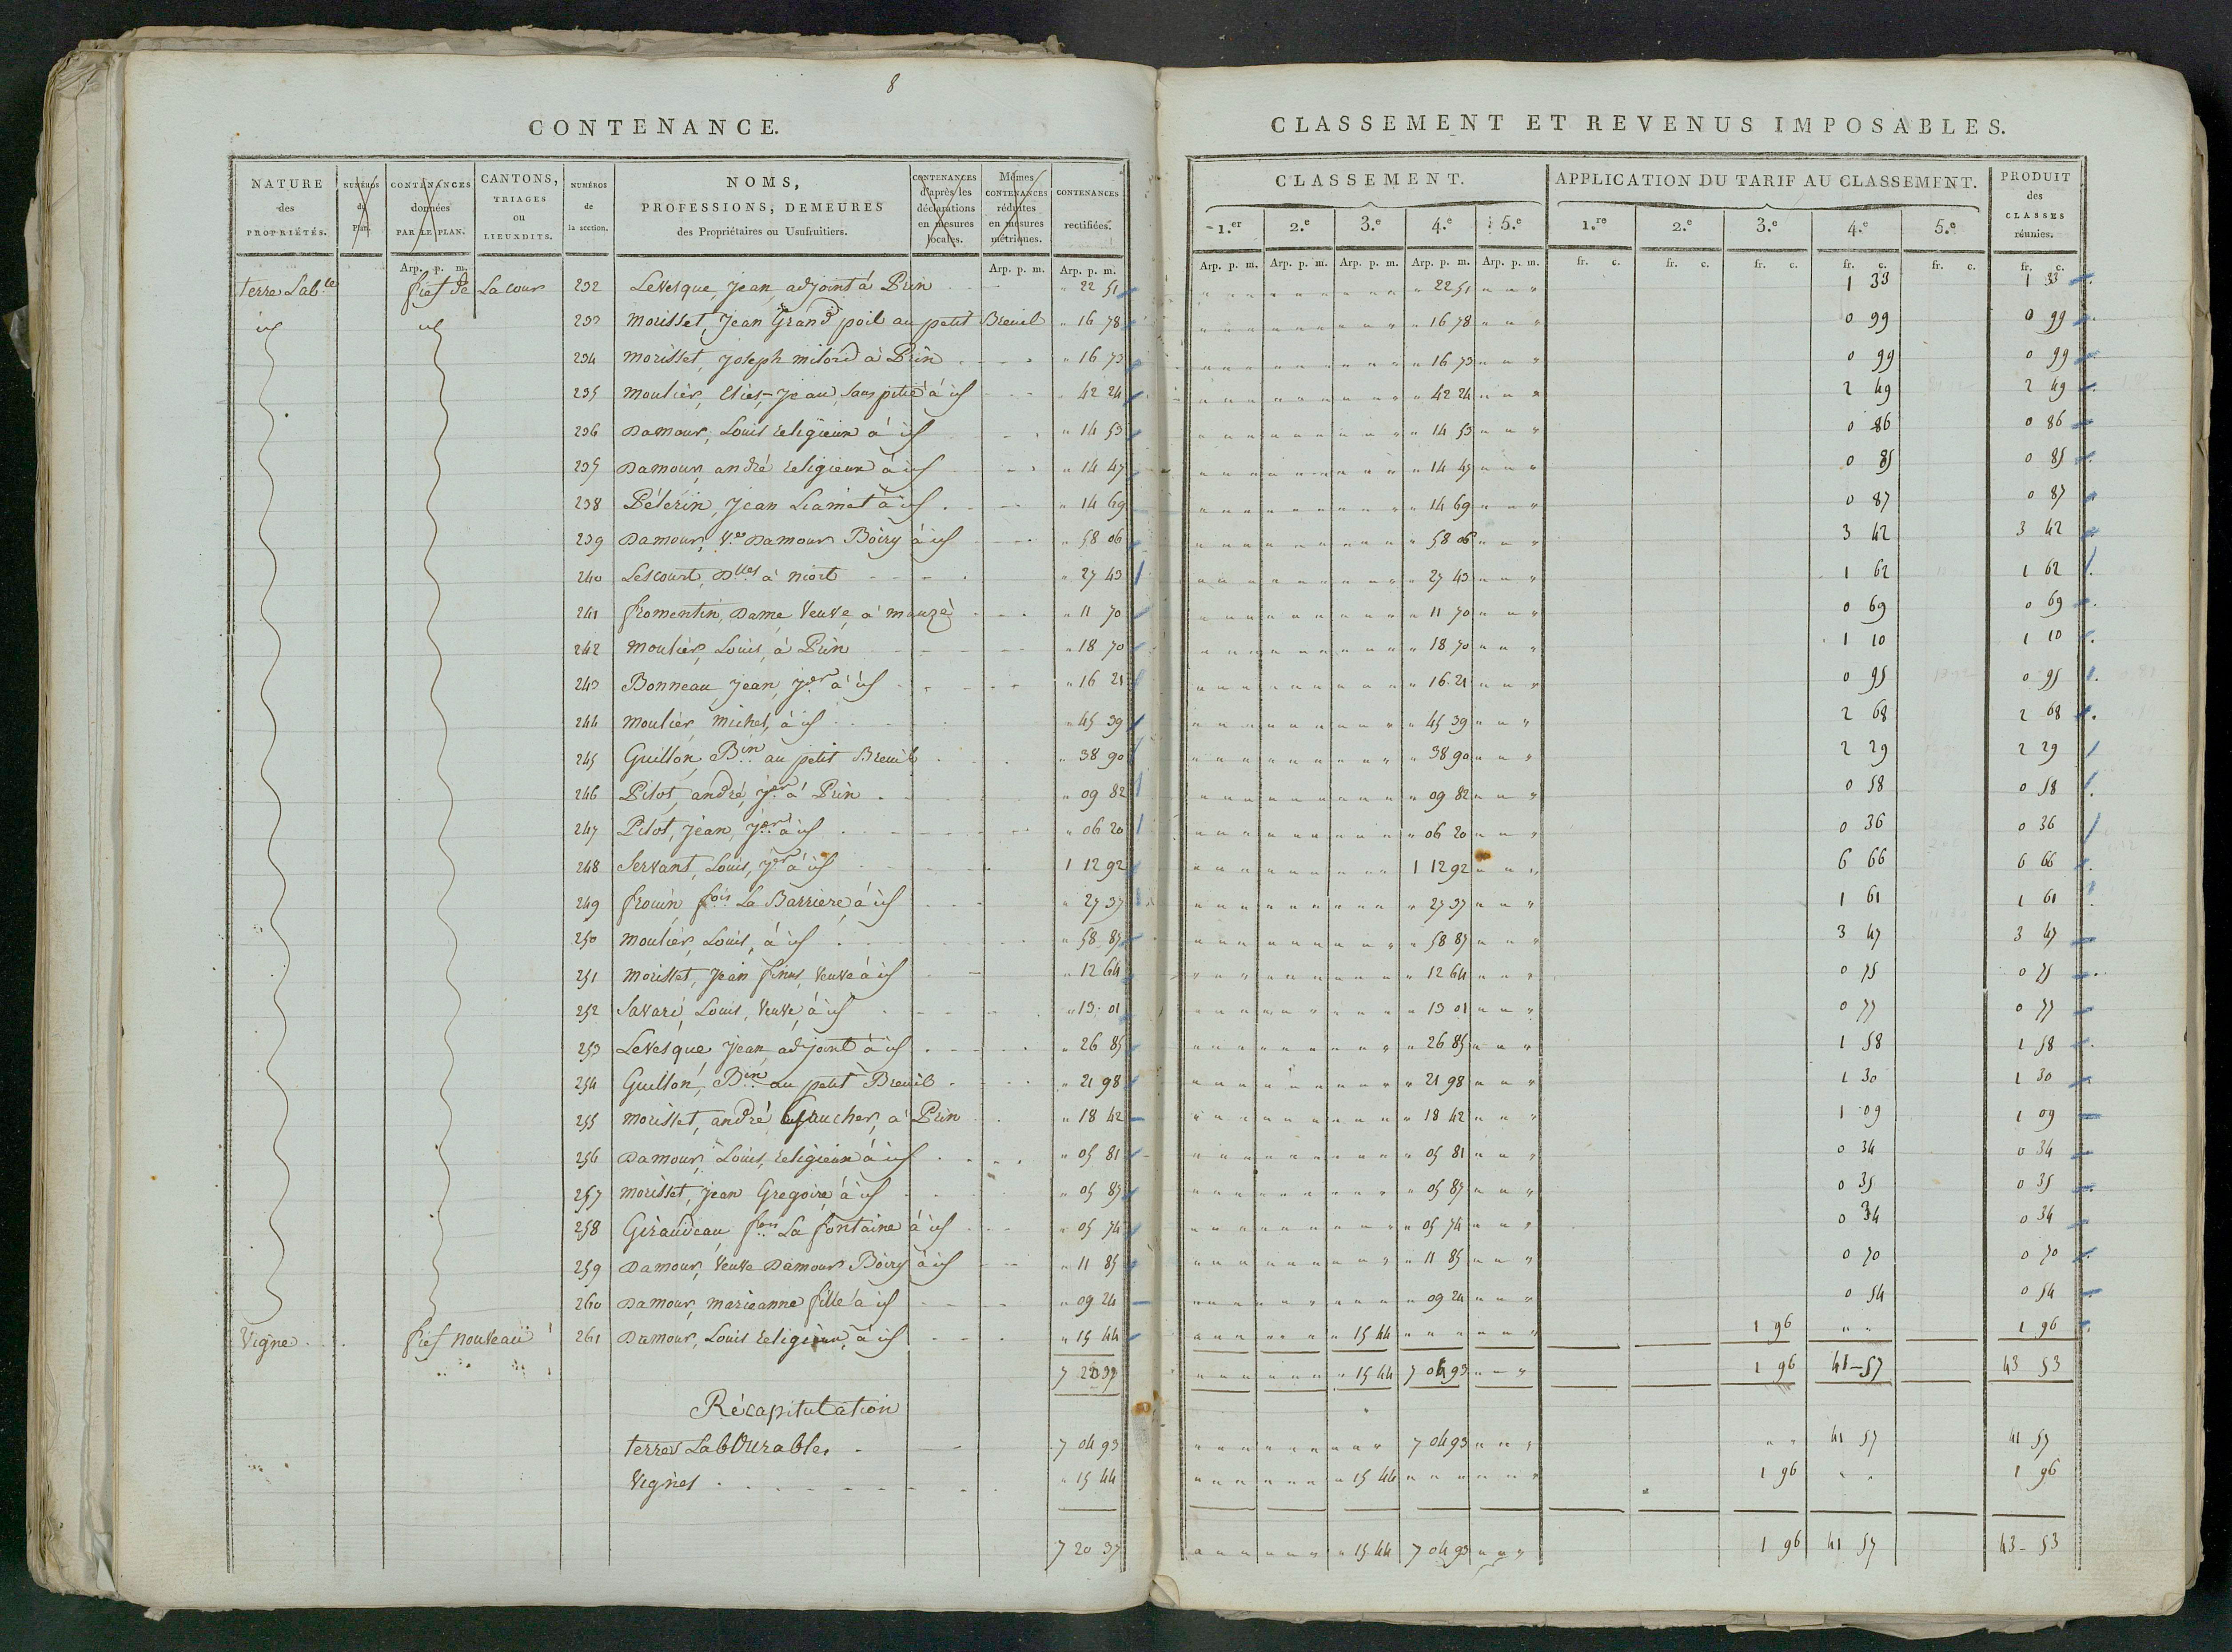 8
CONTENANCE.
NATURE des PROPRIÉTÉS. NUMÉROS du Plan. CONTENANCES données PAR LE PLAN. CANTONS, TRIAGES OU LIEUXDITS. NUMÉROS de la section. NOMS, PROFESSIONS, DEMEURES des Propriétaires ou Usufruitiers. CONTENANCES d'après les déclarations en mesures locales. Mêmes CONTENANCES réduites en mesures métriques. CONTENANCES rectifiées.
Arp. p. m. Arp. p. m. Arp. p. m.
terre Lab.le fief de La cour 232 Levesque, Jean, adjoint à Prin " 22 51
id id 233 Morisset, Jean Grand poil au petit Breuil " 16 78
234 Morisset, Joseph milord à Prin " 16 73
235 Moulier, Eliès-Jean, Sans pitié à id " 42 24
236 Damour, Louis religieux à id " 14 53
237 Damour, andré religieux à id " 14 47
238 Pélerin, Jean à id " 14 69
239 Damour, V.ve Damour Boiry à id " 58 06
240 Lescourt, Dlles à niort " 27 43
241 fromentin, Dame Veuve, à mauzé " 11 70
242 Moulier, Louis, à Prin " 18 70
243 Bonneau Jean, Jer à id " 16 21
244 Moulier, Michel, à id " 45 39
245 Guillon, Bin au petit Breuil " 38 90
246 Pilot, andré, Jer à Prin " 09 82
247 Pilot, Jean, Jer à id " 06 20
248 Servant, Louis, Jer à id 1 12 92
249 frouin fois La Barriere à id " 27 37
250 Moulier, Louis, à id " 58 87
251 Morisset, Jean finus, Veuve à id " 12 64
252 Savari, Louis, Veuve, à id " 13 01
253 Levesque Jean, adjoint à id " 26 85
254 Guillon, Bin au petit Breuil " 21 98
255 Morisset, andré Gaucher, à Prin " 18 42
256 Damour, Louis, religieux à id " 05 81
257 Morisset, Jean Gregoire, à id " 05 87
258 Giraudeau fois La fontaine à id " 05 74
259 Damour, Veuve Damour Boiry à id " 11 85
260 Damour, marieanne fille à id " 09 24
Vigne fief nouveau 261 Damour, Louis religieux, à id " 15 44
7 20 37
Récapitulation
terres Labourables 7 04 93
Vignes " 15 44
7 20 37
CLASSEMENT ET REVENUS IMPOSABLES.
CLASSEMENT. APPLICATION DU TARIF AU CLASSEMENT. PRODUIT des CLASSES réunies.
1.er 2.e 3.e 4.e 5.e 1.re 2.e 3.e 4.e 5.e
Arp. p. m. Arp. p. m. Arp. p. m. Arp. p. m. Arp. p. m. fr. c. fr. c. fr. c. fr. c. fr. c. fr. c.
" 22 51 1 33 1 33
" 16 78 0 99 0 99
" 16 73 0 99 0 99
" 42 24 2 49 2 49
" 14 53 0 86 0 86
" 14 47 0 85 0 85
" 14 69 0 87 0 87
" 58 06 3 42 3 42
" 27 43 1 62 1 62
" 11 70 0 69 0 69
" 18 70 1 10 1 10
" 16 21 0 95 0 95
" 45 39 2 68 2 68
" 38 90 2 29 2 29
" 09 82 0 58 0 58
" 06 20 0 36 0 36
1 12 92 6 66 6 66
" 27 37 1 61 1 61
" 58 87 3 47 3 47
" 12 64 0 75 0 75
" 13 01 0 77 0 77
" 26 85 1 58 1 58
" 21 98 1 30 1 30
" 18 42 1 09 1 09
" 05 81 0 34 0 34
" 05 87 0 35 0 35
" 05 74 0 34 0 34
" 11 85 0 70 0 70
" 09 24 0 54 0 54
" 15 44 1 96 " " 1 96
" 15 44 7 04 93 1 96 41-57 43 53
7 04 93 " " 41 57 41 57
" 15 44 1 96 " " 1 96
" 15 44 7 04 93 1 96 41 57 43-53